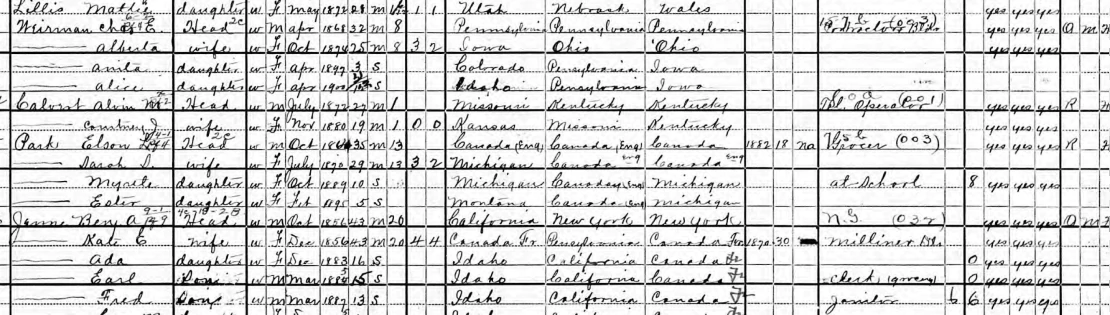 Lillis Mattie daughter w F May 1872 28 M 1 1 Utah Nebraska Wales yes yes yes
Weirman Chas E. Head w M Apr 1868 32 M 8 Pennsylvania Pennsylvania Pennsylvania yes yes yes O M
—— Alberta wife w F Oct 1874 25 M 8 3 2 Iowa Ohio Ohio yes yes yes
—— Anita daughter w F Apr 1897 3 S Colorado Pensylvania Iowa
—— Alice daughter w F Apr 1900 S Idaho Pensylvania Iowa
Calvert Alvin Head w M July 1872 27 M 1 Missouri Kentucky Kentucky Operator (001) yes yes yes R
—— wife w F Nov 1880 19 M 1 0 0 Kansas Missouri Kentucky yes yes yes
Park Elson Head w M Oct 1864 35 M 13 Canada (Eng) Canada (Eng) Canada 1882 18 na Grocer (003) yes yes yes R
—— Sarah wife w F July 1870 29 M 13 3 2 Michigan Canada Eng Canada Eng yes yes yes
—— Myrtle daughter w F Oct 1889 10 S Michigan Canada (Eng) Michigan at School 8 yes yes yes
—— Ester daughter w F Feb 1895 5 S Montana Canada (Eng) Michigan
Jenne Benj A Head w M Oct 1856 43 M 20 California New York New York yes yes yes O M
—— Kate E wife w F Dec 1856 43 M 20 4 4 Canada Fr. Pensylvania Canada Fr 1870 30 Milliner yes yes yes
—— Ada daughter w F Dec 1883 16 S Idaho California Canada Fr 0 yes yes yes
—— Earl Son w M Mar 1885 15 S Idaho California Canada Fr Clerk (grocery) 0 yes yes yes
—— Fred Son w M Mar 1887 13 S Idaho California Canada Fr Janitor 6 6 yes yes yes